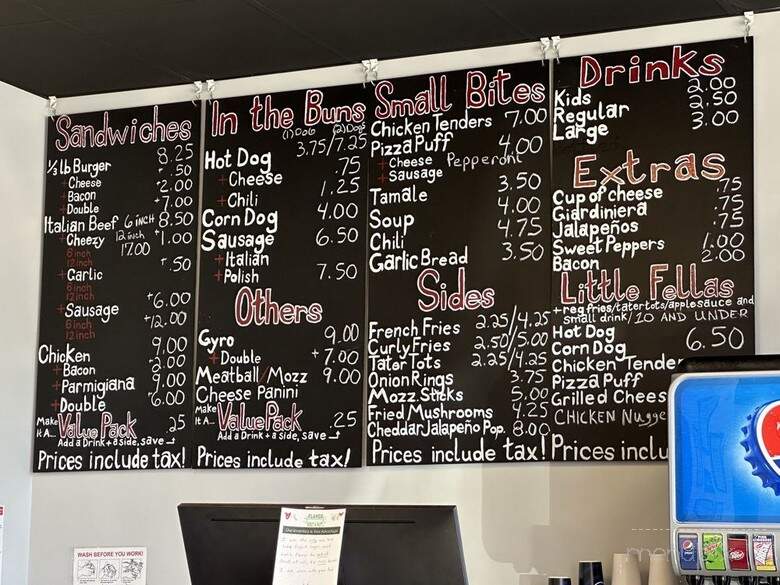 Sandwiches
1/3 lb Burger 8.25
+Cheese +.50
+Bacon +2.00
+Double +7.00
Italian Beef 6 inch 8.50
+Cheezy 12 inch 17.00 +1.00
6 inch
12 inch
+Garlic .50
6 inch
12 inch
+Sausage +6.00
6 inch +12.00
12 inch
Chicken 9.00
+Bacon 2.00
+Parmigiana 9.00
+Double 6.00
Make It A... Value Pack .25
Add a Drink + a side, save
Prices include tax!
In the Buns
(1) Dog (2) Dogs
Hot Dog 3.75/7.25
+Cheese .75
+Chili 1.25
Corn Dog 4.00
Sausage 6.50
+Italian
+Polish 7.50
Others
Gyro 9.00
+Double +7.00
Meatball/Mozz 9.00
Cheese Panini
Make It A... Value Pack .25
Add a Drink + a side, save
Prices include tax!
Small Bites
Chicken Tenders 7.00
Pizza Puff 4.00
+Cheese Pepperoni
+Sausage
Tamale 3.50
Soup 4.00
Chili 4.75
Garlic Bread 3.50
Sides
French Fries 2.25/4.25
Curly Fries 2.50/5.00
Tater Tots 2.25/4.25
Onion Rings 3.75
Mozz. Sticks 5.00
Fried Mushrooms 4.25
Cheddar Jalapeño Pop. 8.00
Prices include tax!
Drinks
Kids 2.00
Regular 2.50
Large 3.00
Extras
Cup of cheese .75
Giardiniera .75
Jalapeños .75
Sweet Peppers 1.00
Bacon 2.00
Little Fellas
+reg fries/tater tots/applesauce and
small drink/10 AND UNDER
Hot Dog 6.50
Corn Dog
Chicken Tender
Pizza Puff
Grilled Chees
CHICKEN Nugge
Prices inclu
WASH BEFORE YOU WORK!
pepsi